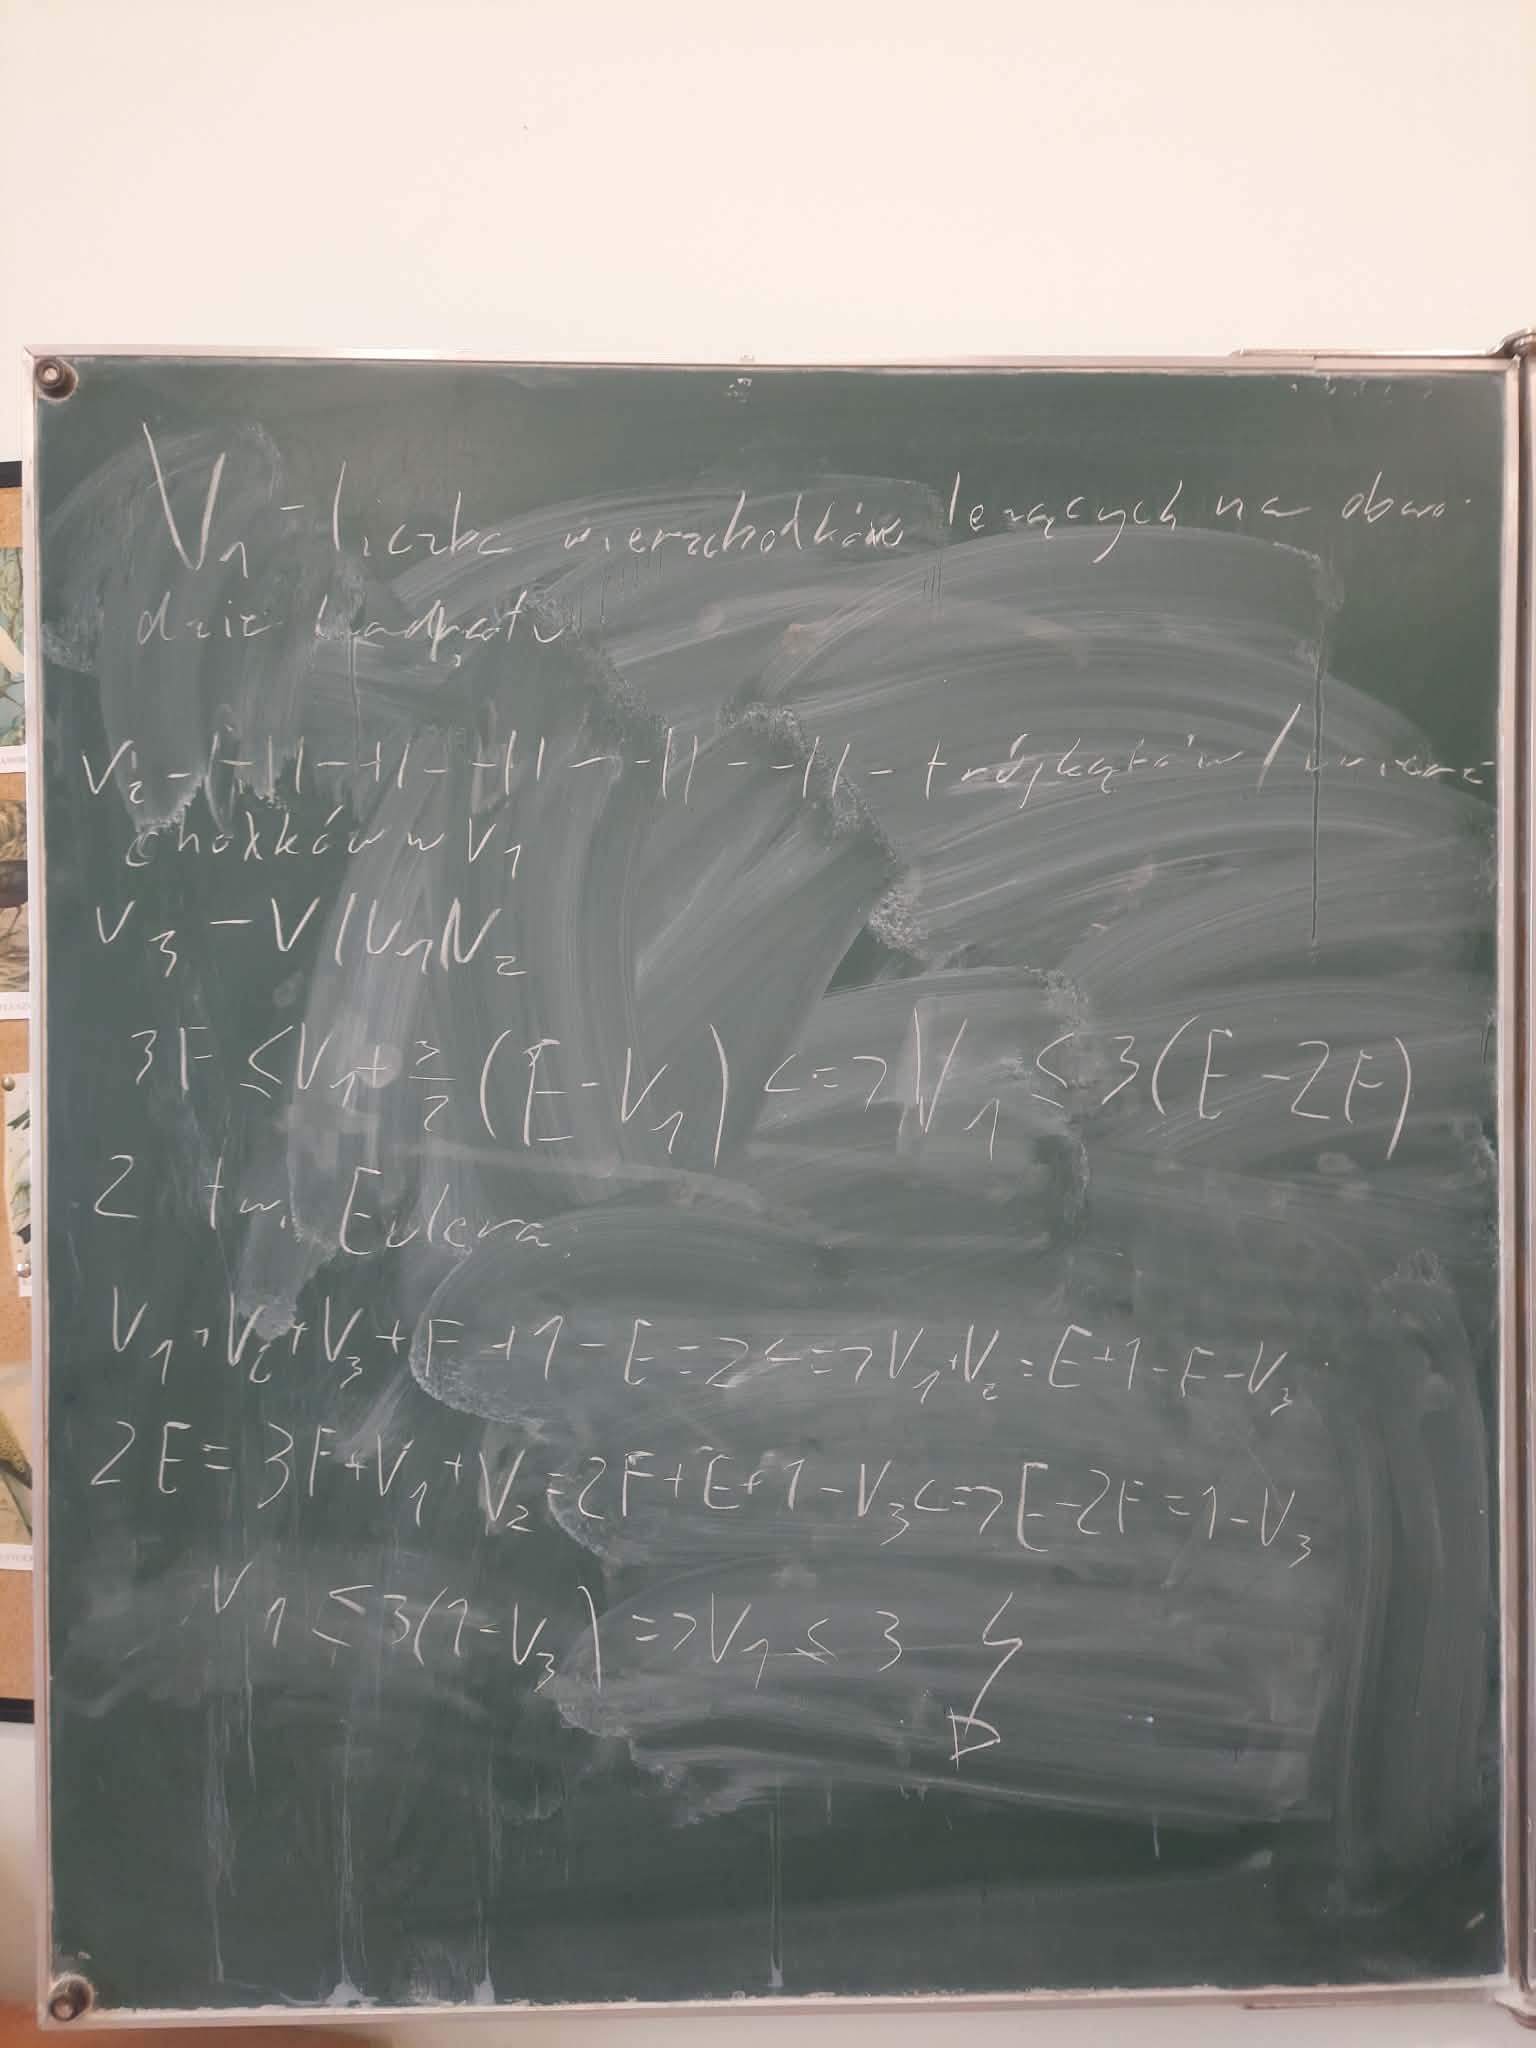 V₁ - liczba wierzchołków leżących na obwo-
dzie kwadratu
V₂ -||- -||- -||- -||- -||- trójkątów \ wierz
chołków w V₁
V₃ - V\V₁\V₂
3F ≤ V₁ + 3/2 (E - V₁) <=> V₁ ≤ 3(E - 2F)
Z tw. Eulera:
V₁ + V₂ + V₃ + F + 1 - E = 2 <=> V₁ + V₂ = E + 1 - F - V₃
2E = 3F + V₁ + V₂ = 2F + E + 1 - V₃ <=> E - 2F = 1 - V₃
V₁ ≤ 3(1 - V₃) => V₁ ≤ 3 ↯
D